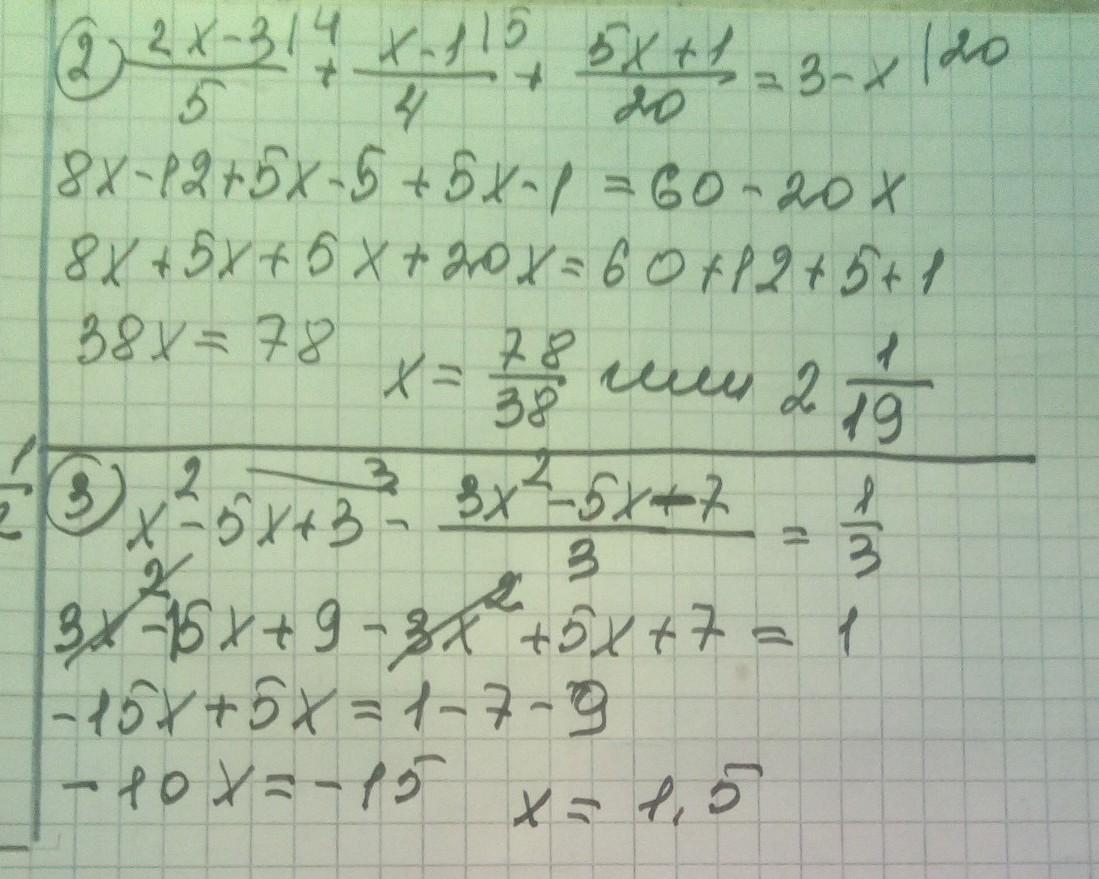 ② (2x-3|4)/5 + (x-1|5)/4 + (5x+1)/20 = 3-x |20
8x-12+5x-5+5x-1=60-20x
8x+5x+5x+20x=60+12+5+1
38x=78 x=78/38 или 2 1/19
1/2
③ x²-5x+3 - (3x²-5x-7)/3 = 1/3
3
3x²-15x+9-3x²+5x+7=1
-15x+5x=1-7-9
-10x=-15 x=1,5